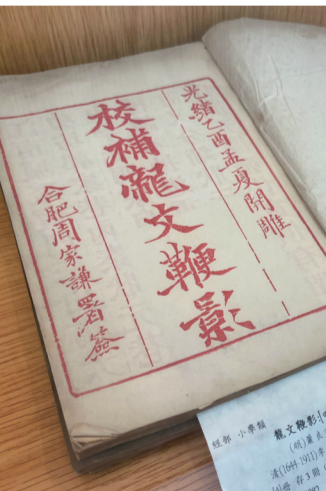 光緒乙酉孟夏開雕
校補龍文鞭影
合肥周家謙署簽
經部 小學類
龍文鞭影
(明)蕭良
清(1644-1911)李
4冊 存3冊